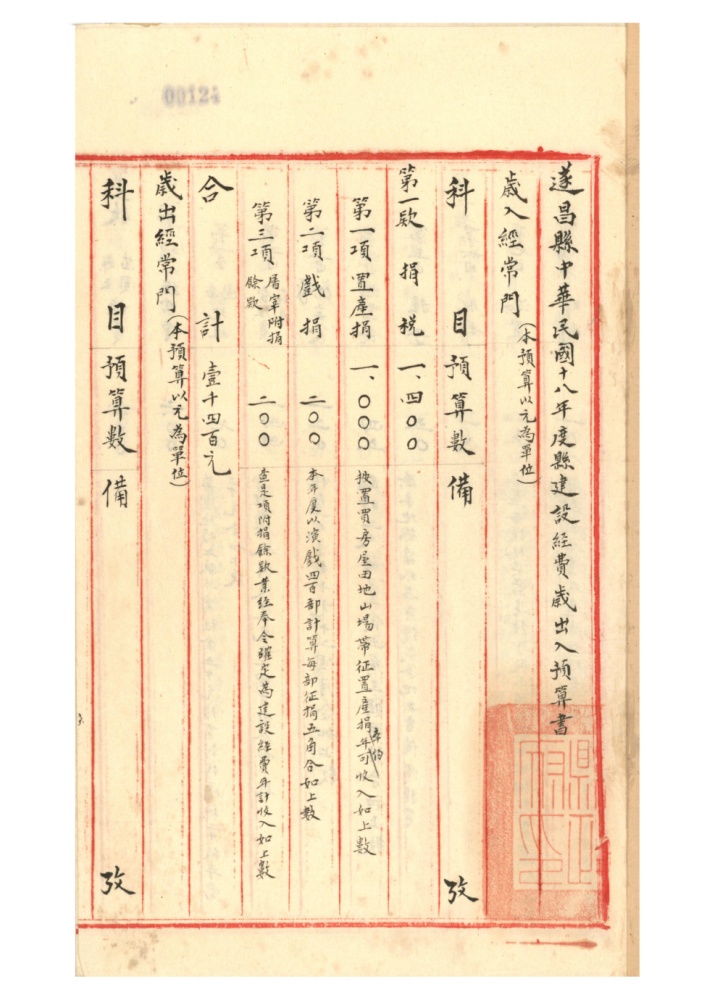 00124
遂昌縣中華民國十八年度縣建設經費歲出入預算書
歲入經常門（本預算以元為單位）
科目預算數備攷
第一款捐稅一、四〇〇
第一項置產捐一、〇〇〇按置買房屋田地山場帶征置產捐年可收入如上數
第二項戲捐二〇〇本年度以演戲四百部計算每部征捐五角合如上數
第三項屠宰附捐餘款二〇〇查是項附捐餘款業經奉令確定為建設經費年計收入如上數
合計壹千四百元
歲出經常門（本預算以元為單位）
科目預算數備攷